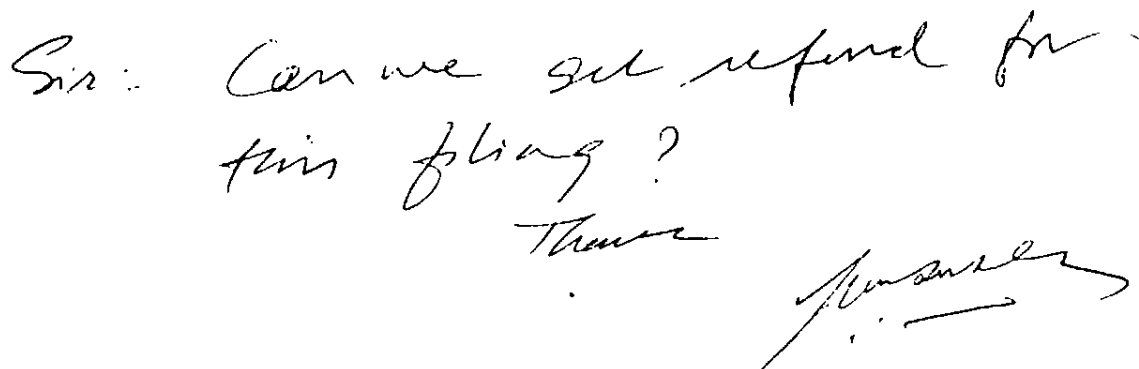 Sir: Can we get refund for
this filing?
Thanks